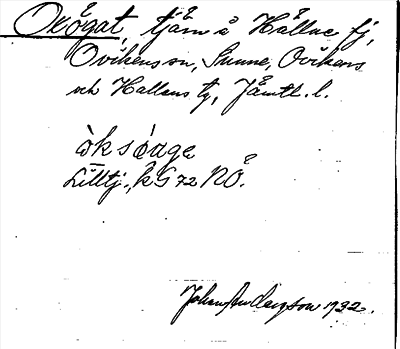 Oxögat, tjärn å Hällne fj,
Ovikens sn, Sunne, Ovikens
och Hallens tg, Jämtl. l.
òksó̱uge
Lilltj., k G 72 NÖ.
Johan Anderzson 1932.